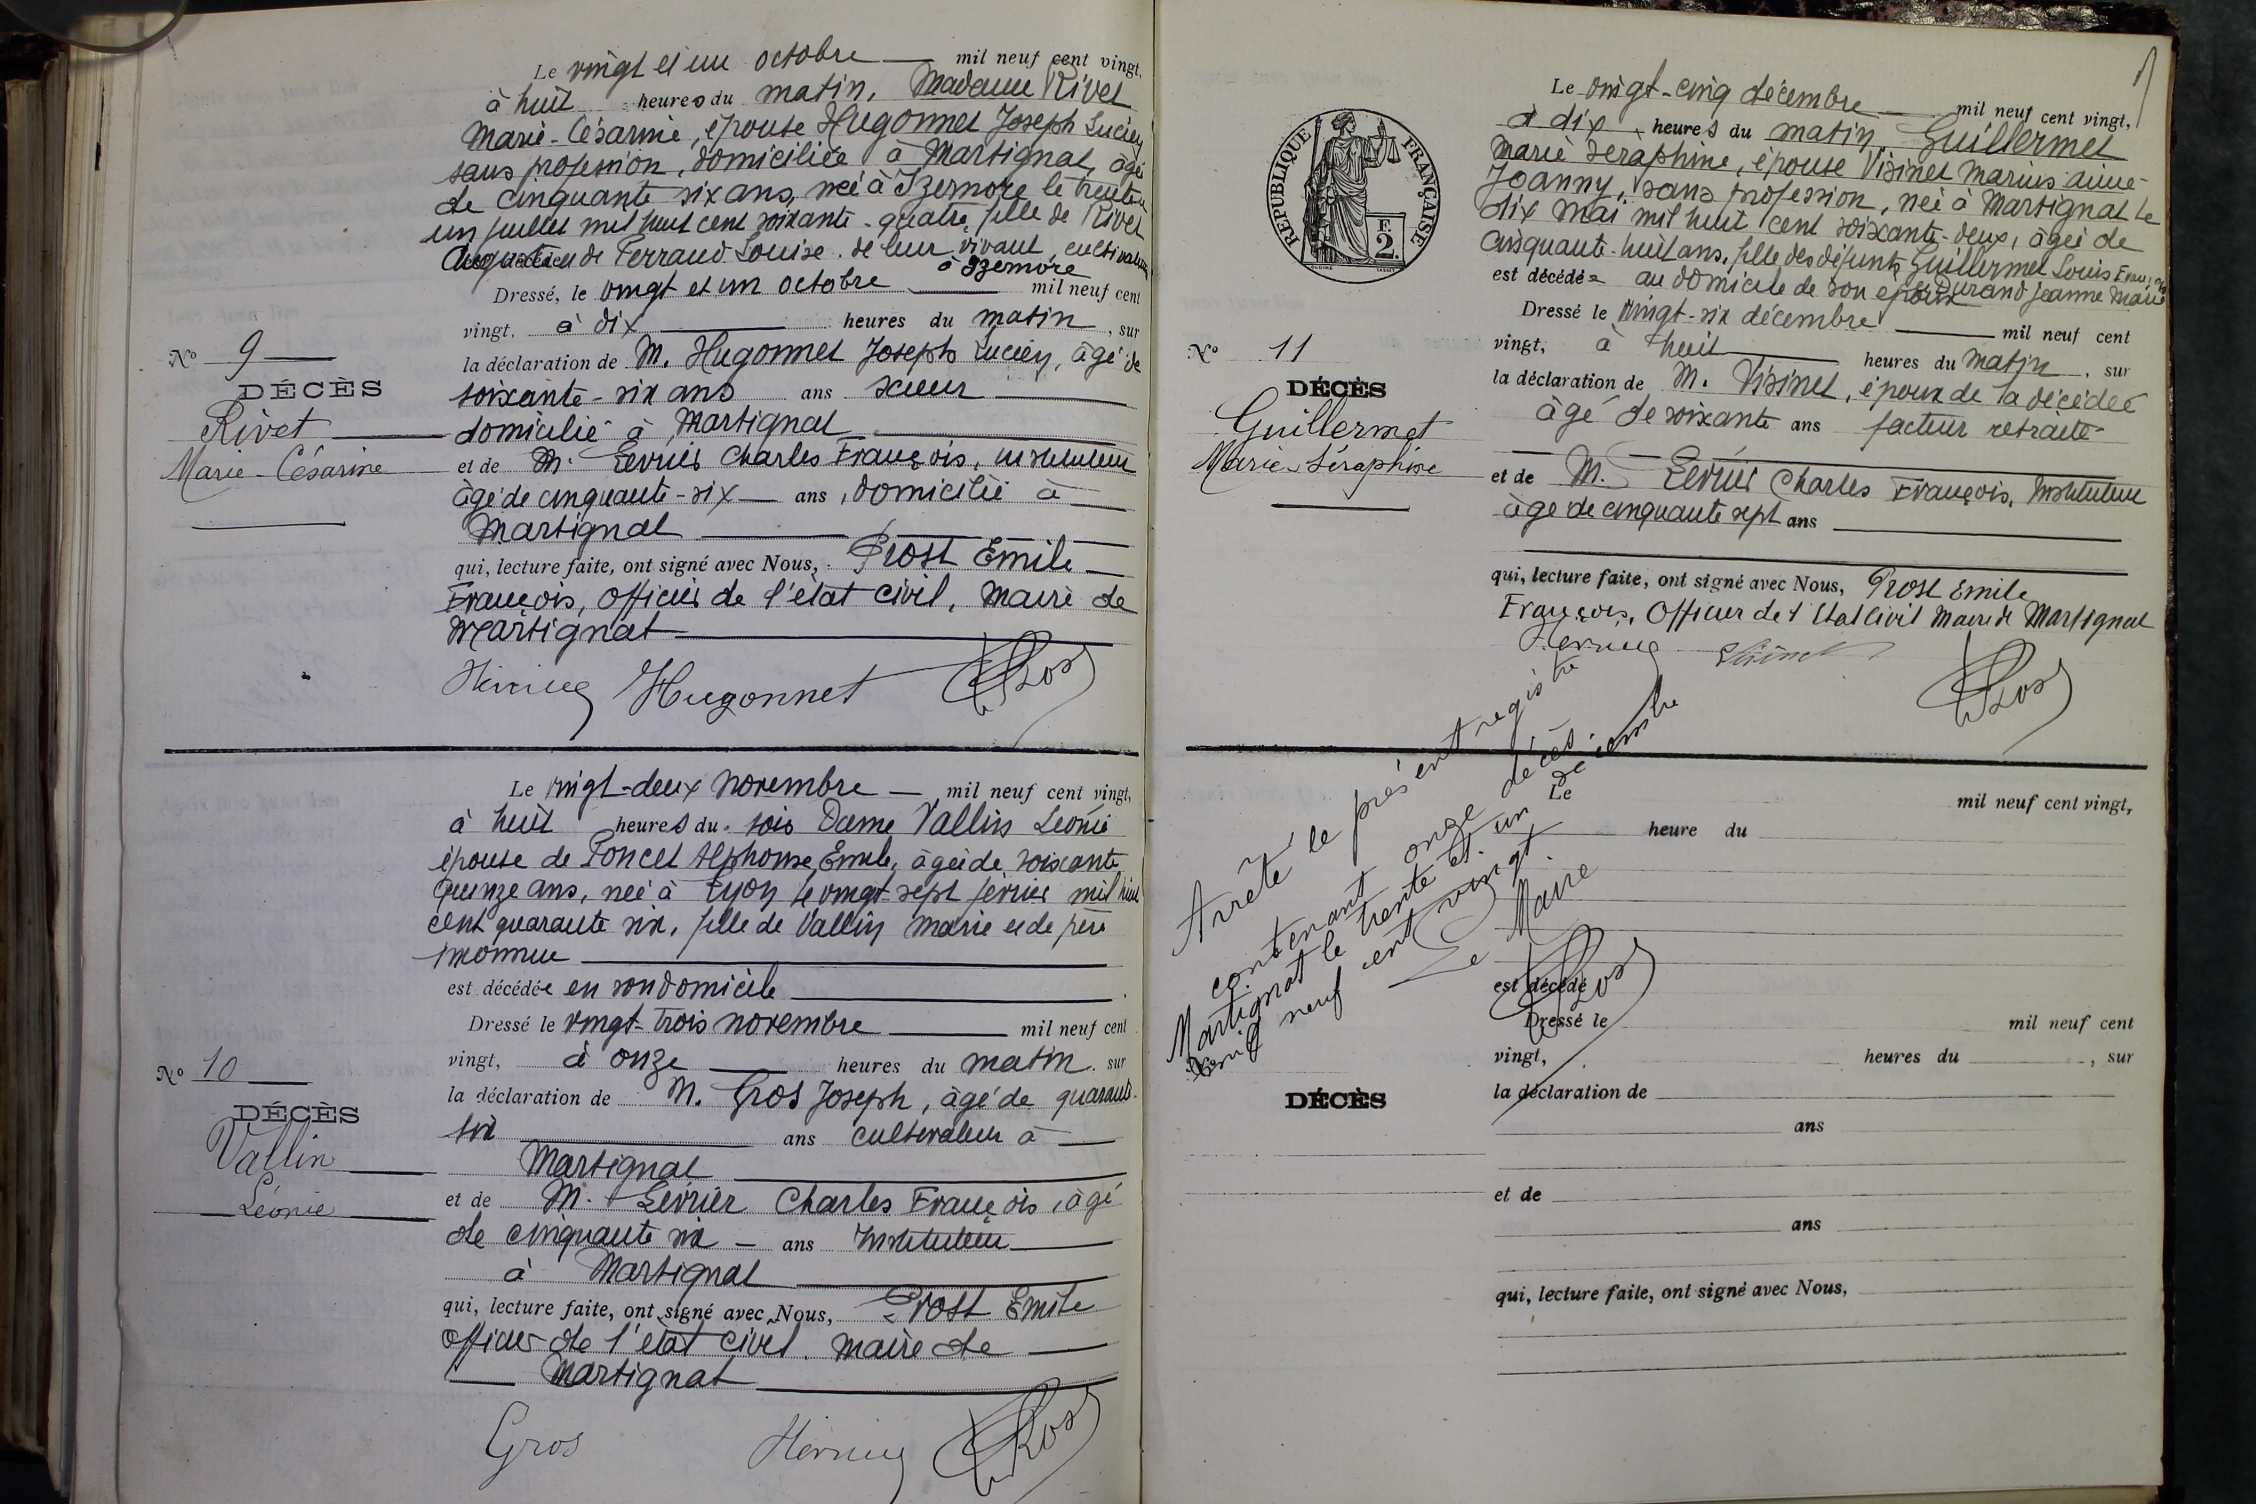 Le vingt et un octobre mil neuf cent vingt,
à huit heures du matin, Madame Rivet
Marie-Césarine, épouse Hugonnet Joseph Lucien
sans profession, domiciliée à Martignat, âgée
de cinquante six ans, née à Izernore le trente et
un juillet mil huit cent soixante-quatre, fille de Rivet
de Ferrand Louise. de leur vivant, cultivateurs
à Izernore
Dressé, le vingt et un octobre mil neuf cent
vingt, à dix heures du matin, sur
la déclaration de M. Hugonnet Joseph Lucien, âgé de
soixante-six ans ans scieur
domicilié à Martignat
et de M. Levrier Charles François, instituteur
âgé de cinquante-six ans, domicilié à
Martignat
qui, lecture faite, ont signé avec Nous, Prost Emile
François, officier de l'état civil, maire de
Martignat
Hugonnet Prost
No 9
DÉCÈS
Rivet
Marie-Césarine
Le vingt-deux novembre mil neuf cent vingt,
à huit heures du soir Dame Vallin Léonie
épouse de Poncet Alphonse Emile, âgée de soixante
quinze ans, née à Lyon le vingt-sept février mil huit
cent quarante six, fille de Vallin Marie et de père
inconnu
est décédée en son domicile
Dressé le vingt-trois novembre mil neuf cent
vingt, à onze heures du matin. sur
la déclaration de M. Gros Joseph, âgé de quarante-
six ans cultivateur à
Martignat
et de M. Levrier Charles François, âgé
de cinquante six ans Instituteur
à Martignat
qui, lecture faite, ont signé avec Nous, Prost Emile
officier de l'état civil. maire de
Martignat
Gros Prost
No 10
DÉCÈS
Vallin
Léonie
RÉPUBLIQUE FRANÇAISE
2 F.
Le vingt-cinq décembre mil neuf cent vingt,
à dix heures du matin Guillermet
Marie Séraphine, épouse Visinet Marius aimé-
Joanny, sans profession, née à Martignat le
dix mai mil huit cent soixante-deux, âgée de
cinquante-huit ans, fille des défunts Guillermet Louis
et Durand Jeanne Marie
est décédée au domicile de son époux
Dressé le vingt-six décembre mil neuf cent
vingt, à huit heures du matin, sur
la déclaration de M. Visinet, époux de la décédée
âgé de soixante ans facteur retraité
et de M. Levrier Charles François, Instituteur
âgé de cinquante sept ans
qui, lecture faite, ont signé avec Nous, Prost Emile
François, Officier de l'Etat Civil Maire de Martignat
Visinet Prost
No 11
DÉCÈS
Guillermet
Marie-Séraphine
Arrêté le présent registre
contenant onze décès.
Martignat le trente et un décembre
mil neuf cent vingt.
Le Maire
Prost
Le mil neuf cent vingt,
heure du
est décédé
Dressé le mil neuf cent
vingt, heures du , sur
la déclaration de
ans
et de
ans
qui, lecture faite, ont signé avec Nous,
DÉCÈS